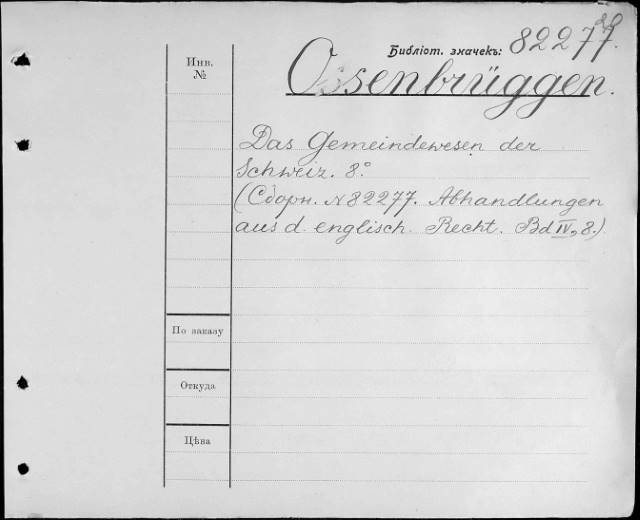 Библіот. значекъ: 82277.
Инв.
№
Ossenbrüggen.
Das Gemeindewesen der
Schweiz. 8.°
(Сборн. N 82277. Abhandlungen
aus d. englisch. Recht. Bd IV, 8.)
По заказу
Откуда
Цѣна